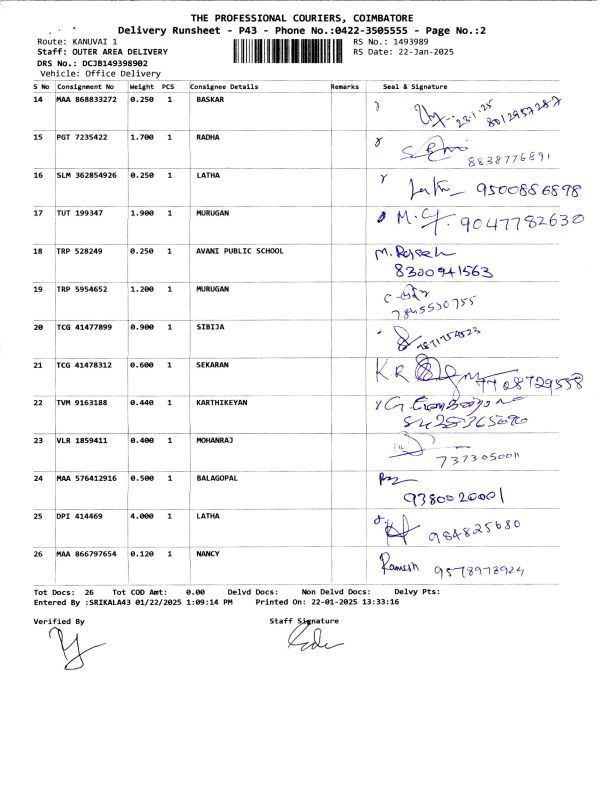 THE PROFESSIONAL COURIERS, COIMBATORE
Delivery Runsheet - P43 - Phone No.:0422-3505555 - Page No.:2
Route: KANUVAI 1 RS No.: 1493989
Staff: OUTER AREA DELIVERY RS Date: 22-Jan-2025
DRS No.: DCJB149398902
Vehicle: Office Delivery
S No Consignment No Weight PCS Consignee Details Remarks Seal & Signature
14 MAA 868833272 0.250 1 BASKAR 23.1.25 8012957287
15 PGT 7235422 1.700 1 RADHA 8838776891
16 SLM 362854926 0.250 1 LATHA 9500886898
17 TUT 199347 1.900 1 MURUGAN 9047782630
18 TRP 528249 0.250 1 AVANI PUBLIC SCHOOL M. Rajesh
8300941563
19 TRP 5954652 1.200 1 MURUGAN
7845530755
20 TCG 41477899 0.900 1 SIBIJA
21 TCG 41478312 0.600 1 SEKARAN K R 7708729558
22 TVM 9163188 0.440 1 KARTHIKEYAN
23 VLR 1859411 0.400 1 MOHANRAJ
7373050011
24 MAA 576412916 0.500 1 BALAGOPAL
9380020001
25 DPI 414469 4.000 1 LATHA 984825680
26 MAA 866797654 0.120 1 NANCY Ramesh 9578978924
Tot Docs: 26 Tot COD Amt: 0.00 Delvd Docs: Non Delvd Docs: Delvy Pts:
Entered By :SRIKALA43 01/22/2025 1:09:14 PM Printed On: 22-01-2025 13:33:16
Verified By Staff Signature